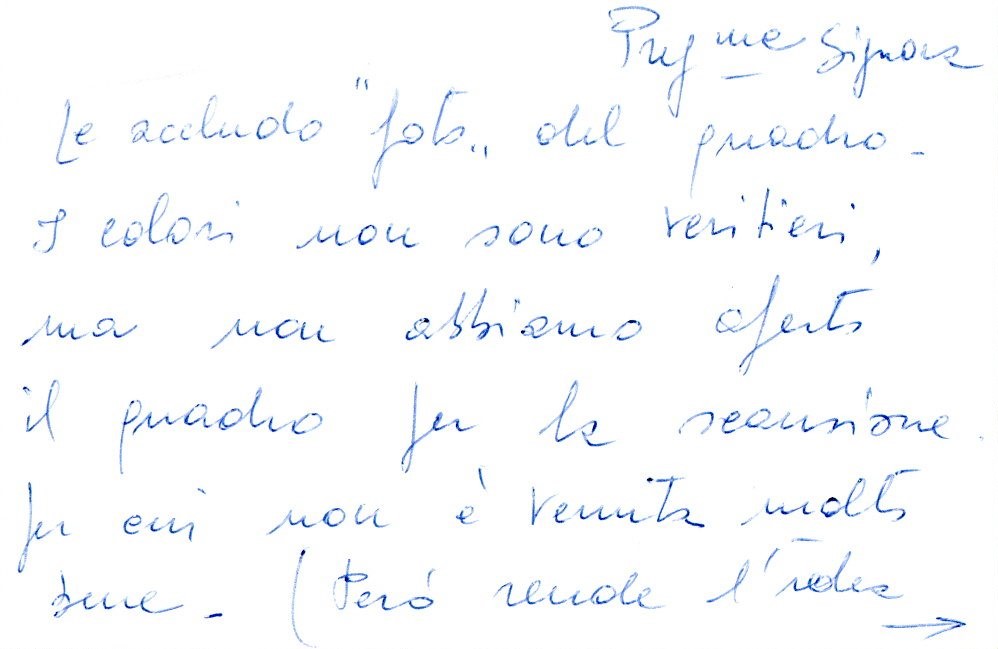 Preg.me Signora
Le accludo "foto„ del quadro -
I colori non sono veritieri,
ma non abbiamo aperto
il quadro per la scansione.
per cui non è venuta molto
bene - (Però rende l'idea →